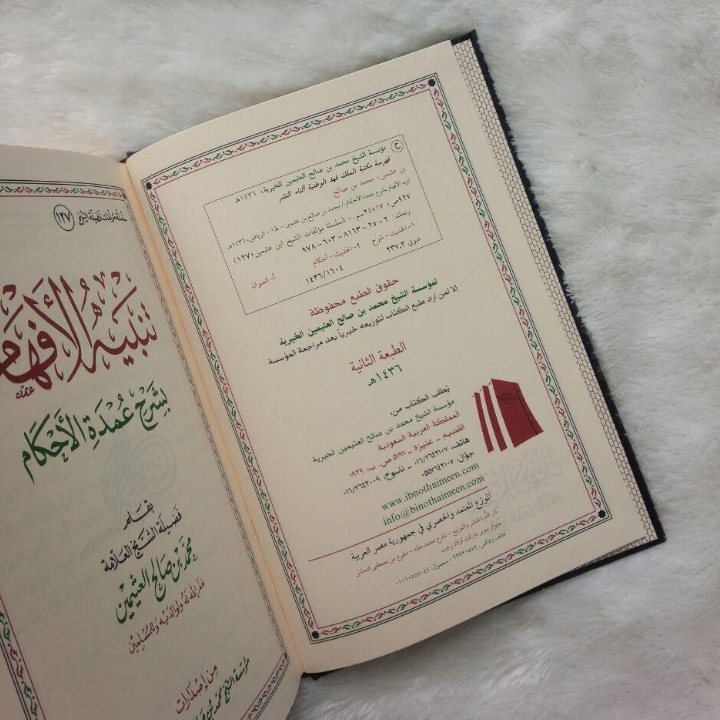 ح مؤسسة الشيخ محمد بن صالح العثيمين الخيرية، ١٤٣٦هـ
فهرسة مكتبة الملك فهد الوطنية أثناء النشر
بن عثيمين، محمد بن صالح
تنبيه الأفهام بشرح عمدة الأحكام / محمد بن صالح بن عثيمين - ط١ - الرياض، ١٤٣٦هـ
٩٢٧ص؛ ١٧×٢٤سم - (سلسلة مؤلفات الشيخ ابن عثيمين؛ ١٢٧)
ردمك: ٢ - ٢٥ - ٨١٦٣ - ٦٠٣ - ٩٧٨
١- الحديث - شرح ٢- الحديث - أحكام أ. العنوان
ديوي ٢٣٧٫٣ ١٤٣٦/١٦٠٤
حقوق الطبع محفوظة
لمؤسسة الشيخ محمد بن صالح العثيمين الخيرية
إلا لمن أراد طبع الكتاب لتوزيعه خيرياً بعد مراجعة المؤسسة
الطبعة الثانية
١٤٣٦هـ
يطلب الكتاب من:
مؤسسة الشيخ محمد بن صالح العثيمين الخيرية
المملكة العربية السعودية
القصيم - عنيزة - ٥١٩١١ ص. ب: ١٩٢٩
هاتف: ٠١٦/٣٦٤٢١٠٧ - ناسوخ: ٠١٦/٣٦٤٢٠٠٩
جوال: ٠٥٥٣٦٤٢١٠٧
www.ibnothaimeen.com
info@binothaimeen.com
الموزع المعتمد والحصري في جمهورية مصر العربية
سلسلة مؤلفات فضيلة الشيخ ١٢٧
تنبيه الأفهام
بشرح عمدة الأحكام
بقلم
فضيلة الشيخ العلامة
محمد بن صالح العثيمين
غفر الله له ولوالديه وللمسلمين
من إصدارات
مؤسسة الشيخ محمد بن